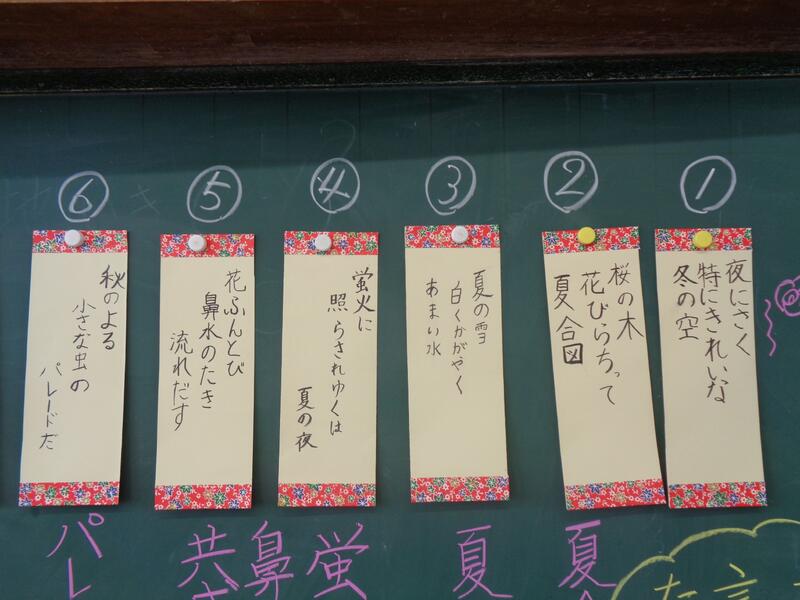 ①
夜にさく
特にきれいな
冬の空
②
桜の木
花びらちって
夏合図
③
夏の雪
白くかがやく
あまい水
④
蛍火に
照らされゆくは
夏の夜
⑤
花ふんとび
鼻水のたき
流れだす
⑥
秋のよる
小さな虫の
パレードだ
夏
夏
蛍
鼻
共
パレ